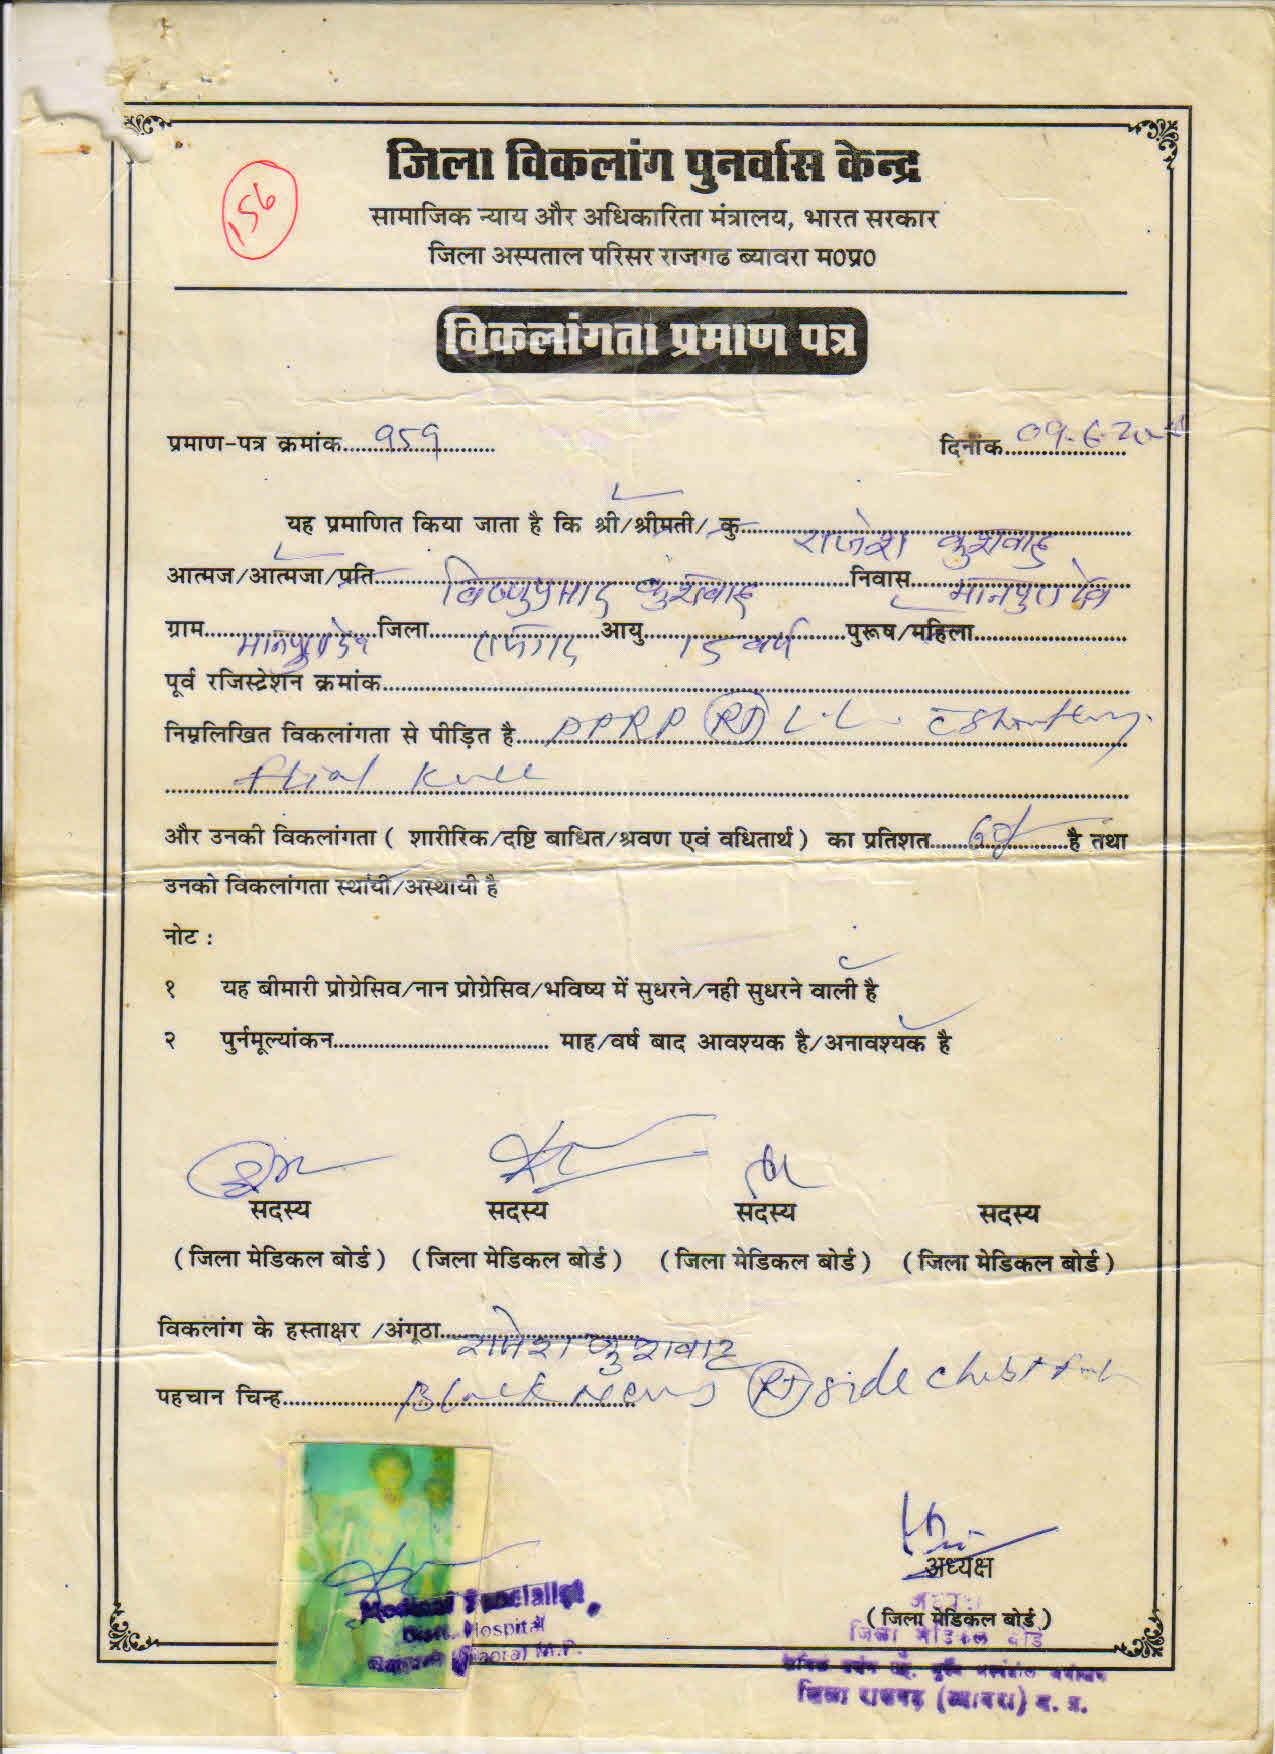 156
जिला विकलांग पुनर्वास केन्द्र
सामाजिक न्याय और अधिकारिता मंत्रालय, भारत सरकार
जिला अस्पताल परिसर राजगढ ब्यावरा म0प्र0
विकलांगता प्रमाण पत्र
प्रमाण-पत्र क्रमांक.....९५९..... दिनांक.....09-6-20
यह प्रमाणित किया जाता है कि श्री/श्रीमती/ कु.....राजेश कुशवाह
आत्मज/आत्मजा/प्रति.....विष्णुप्रसाद कुशवाह.....निवास.....मानपुरा देव
ग्राम.....मानपुरा देव.....जिला.....राजगढ.....आयु.....15 वर्ष.....पुरूष/महिला.....
पूर्व रजिस्ट्रेशन क्रमांक.....
निम्नलिखित विकलांगता से पीड़ित है.....PPRP (RT) L.L.
flial knee
और उनकी विकलांगता ( शारीरिक/दष्टि बाधित/श्रवण एवं वधितार्थ ) का प्रतिशत..........है तथा
उनको विकलांगता स्थायी/अस्थायी है
नोट :
१ यह बीमारी प्रोग्रेसिव/नान प्रोग्रेसिव/भविष्य में सुधरने/नही सुधरने वाली है
२ पुर्नमूल्यांकन..................... माह/वर्ष बाद आवश्यक है/अनावश्यक है
सदस्य सदस्य सदस्य सदस्य
( जिला मेडिकल बोर्ड ) ( जिला मेडिकल बोर्ड ) ( जिला मेडिकल बोर्ड ) ( जिला मेडिकल बोर्ड )
विकलांग के हस्ताक्षर /अंगूठा.....राजेश कुशवाह
पहचान चिन्ह.....Black (RT) side chest
अध्यक्ष
( जिला मेडिकल बोर्ड )
Medical Specialist,
Distt. Hospital
M.P.
जिला मेडिकल बोर्ड
जिला राजगढ़ (ब्यावरा) म. प्र.